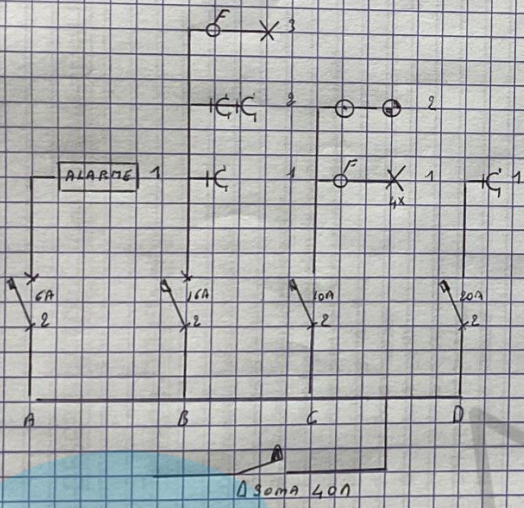 F
3
2
2
F
ALARME 1
1
1
4x
1
6A
16A
10A
20A
2
2
2
2
A B C D
Δ30mA 40A